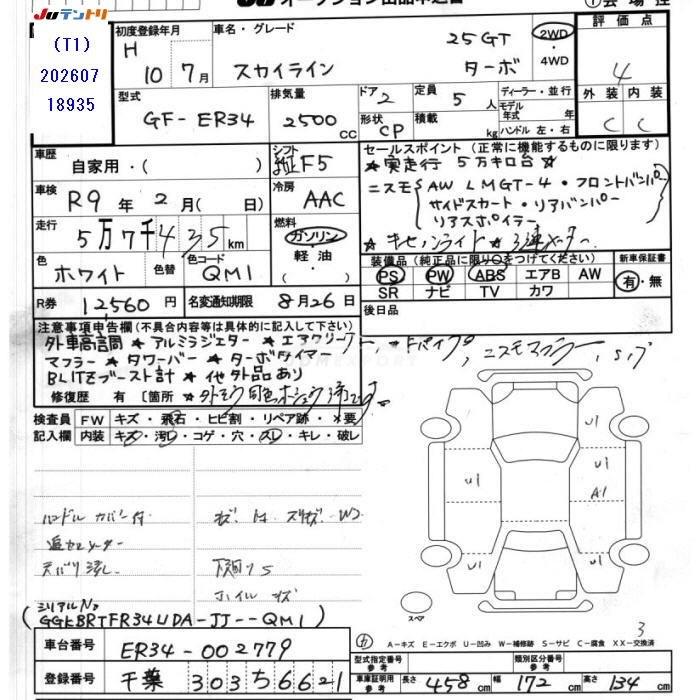 JUテントリ
オークション出品申込書
会場控
(T1)
202607
18935
初度登録年月
H
10 7月
車名・グレード
25GT
スカイライン ターボ
2WD
・
4WD
評価点
4
外装 内装
C C
型式
GF- ER34
排気量
2500cc
ドア 2
形状 CP
定員 5人
積載 kg
ディーラー・並行
モデル年式 年
ハンドル 左・右
車歴
自家用・( )
シフト
F5
セールスポイント (正常に機能するものに限ります)
★実走行 5万キロ台☆
ニスモ AW LMGT-4・フロントバンパー
サイドスカート・リアバンパー
リアスポイラー
★キセノンライト★3連メーター
車検
R9年2月( 日)
冷房
AAC
走行
5万7千435km
燃料
ガソリン
・
軽油
色
ホワイト
色替
色コード
QM1
装備品 (純正品に限り○をつけてください)
PS PW ABS エアB AW
SR ナビ TV カワ
新車保証書
有・無
R券 12,560円
名変通知期限 8月26日
後日品
注意事項申告欄 (不具合内容等は具体的に記入して下さい)
外車高調 ★アルミラジエター ★エアクリーナー ★Fパイプ, ニスモマフラー,
マフラー ★タワーバー ★ターボタイマー
BLITZブースト計 ★他外品あり
修復歴 有 [箇所
検査員 FW キズ・飛石・ヒビ割・リペア跡・×要
記入欄 内装 キズ・汚レ・コゲ・穴・スレ・キレ・破レ
ハンドル カバー付
追加メーター
天バリ
ホイル キズ
U1
U1 U1
A1
U1 U1
スペア
3
シリアルNo
(GGKBRTFR34UDA-JJ--QM1)
A-キズ E-エクボ U-凹み W-補修跡 S-サビ C-腐食 XX-交換済
車台番号 ER34-002779
登録番号 千葉 303 ち 6621
型式指定番号 参考
類別区分番号 参考
車庫証明用 参考 長さ 458cm 幅 172cm 高さ 134cm